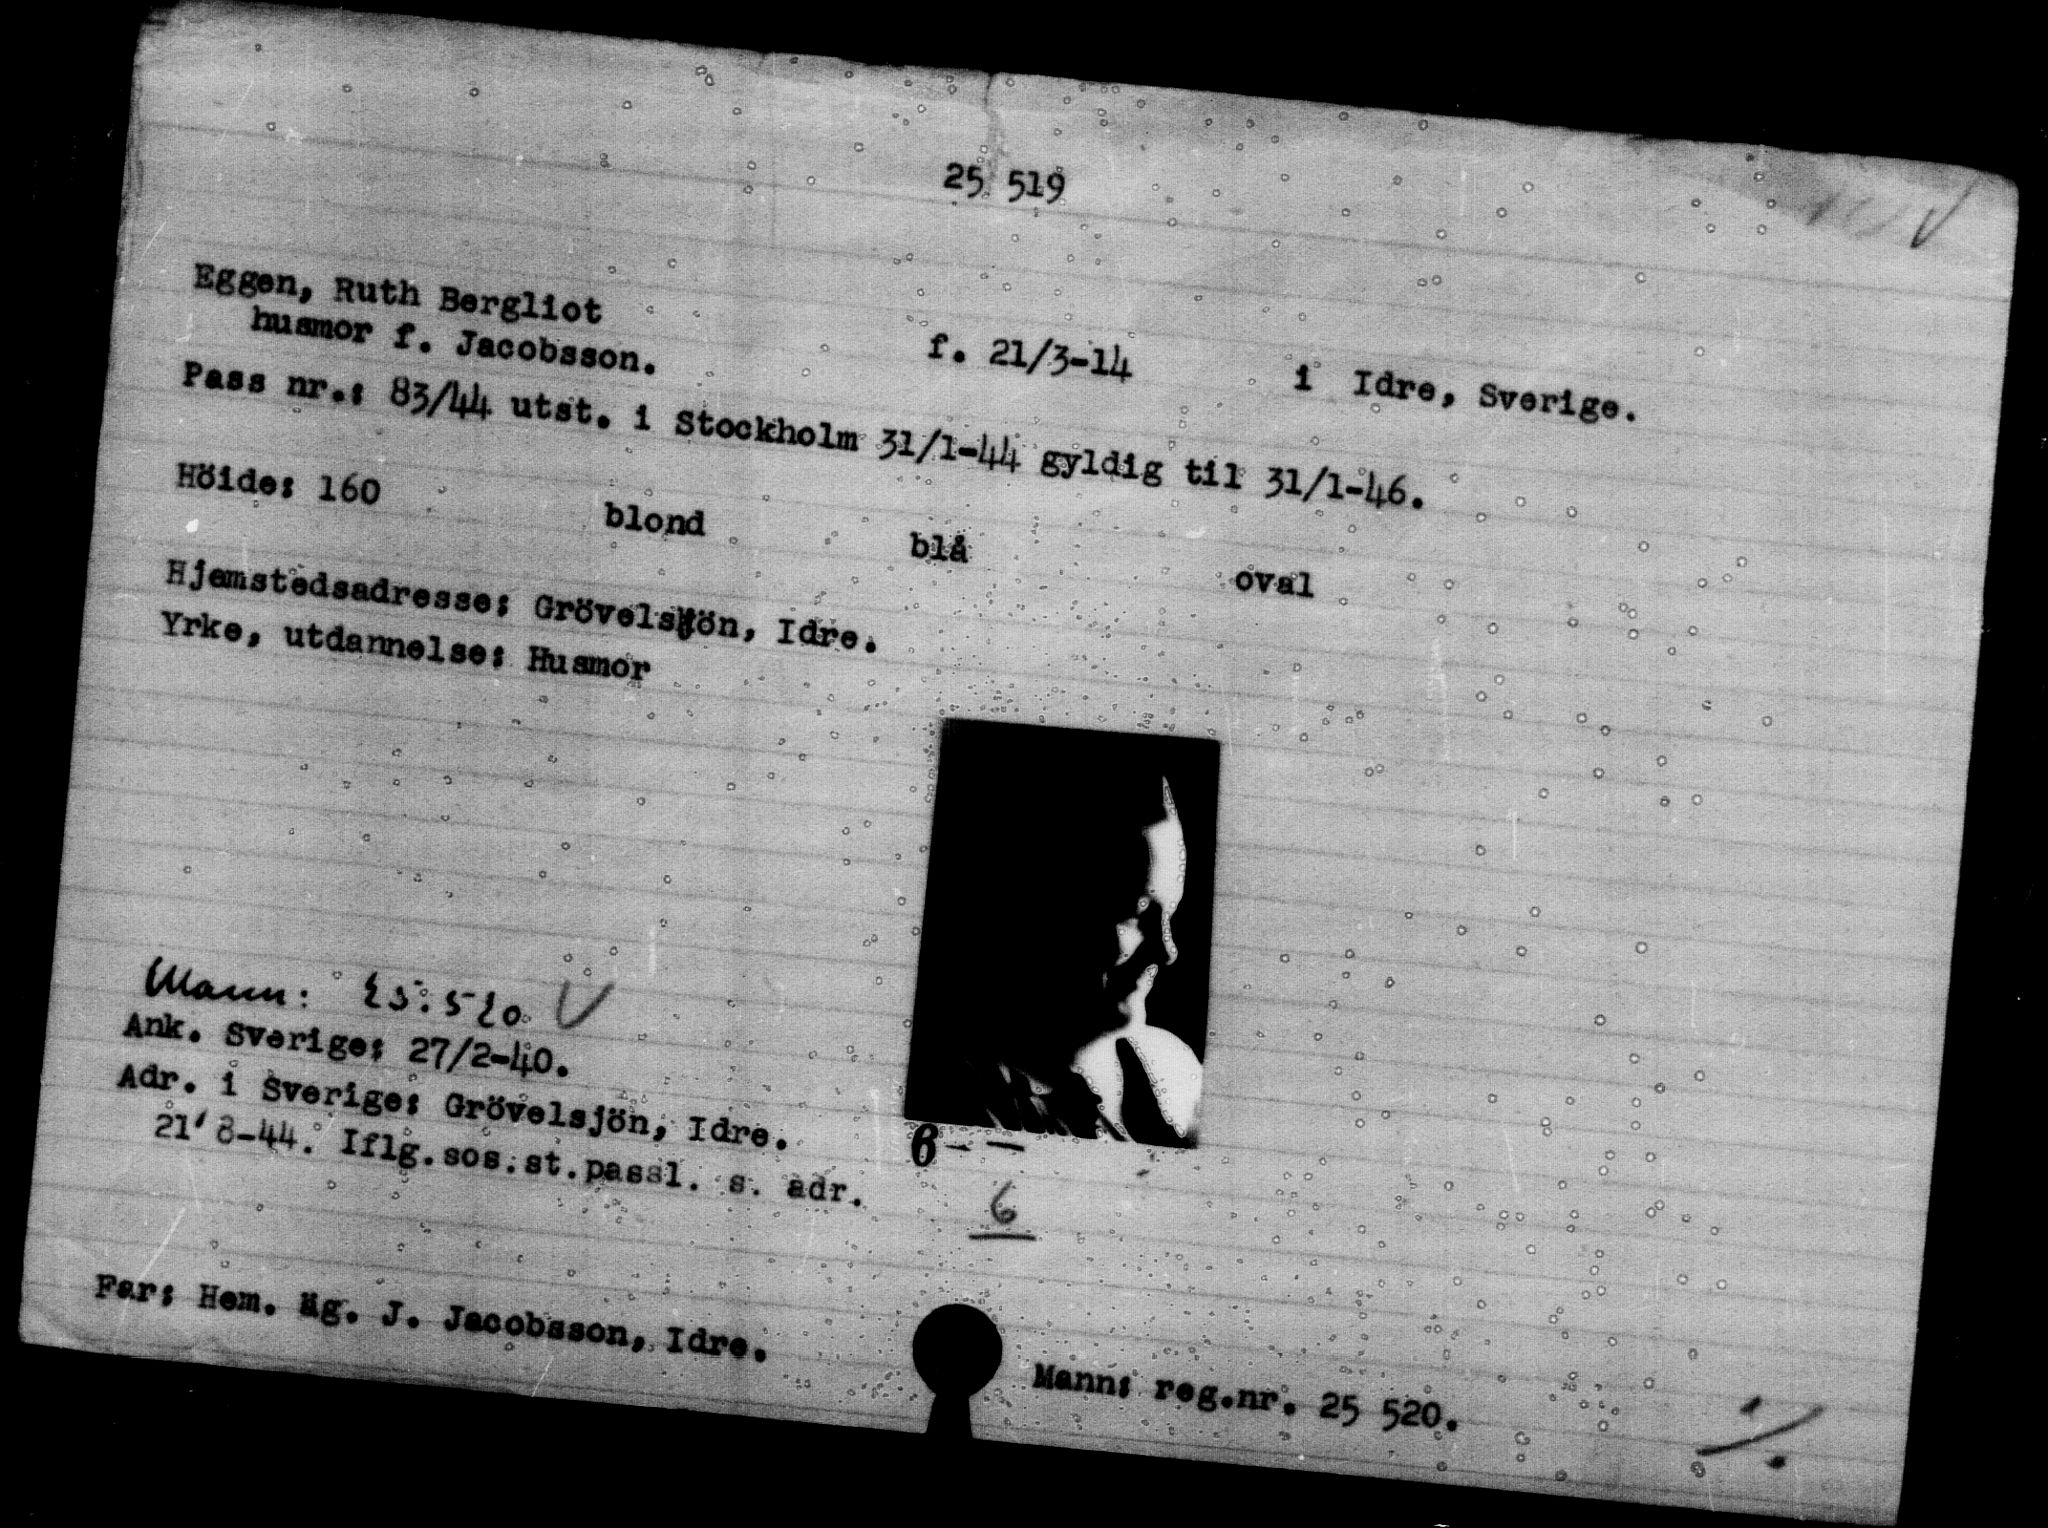 25 519
Eggen, Ruth Bergliot
husmor f. Jacobsson. f. 21/3-14 i Idre, Sverige.
Pass nr.: 83/44 utst. i Stockholm 31/1-44 gyldig til 31/1-46.
Höide: 160 blond blå oval
Hjemstedsadresse: Grövelsjön, Idre.
Yrke, utdannelse: Husmor
Mann: 25.520 V
Ank. Sverige: 27/2-40.
Adr. i Sverige: Grövelsjön, Idre.
21/8-44. Iflg.sos.st.passl. s. adr.
6 - -
6
Far: Hem. äg. J. Jacobsson, Idre.
Mann: reg.nr. 25 520.